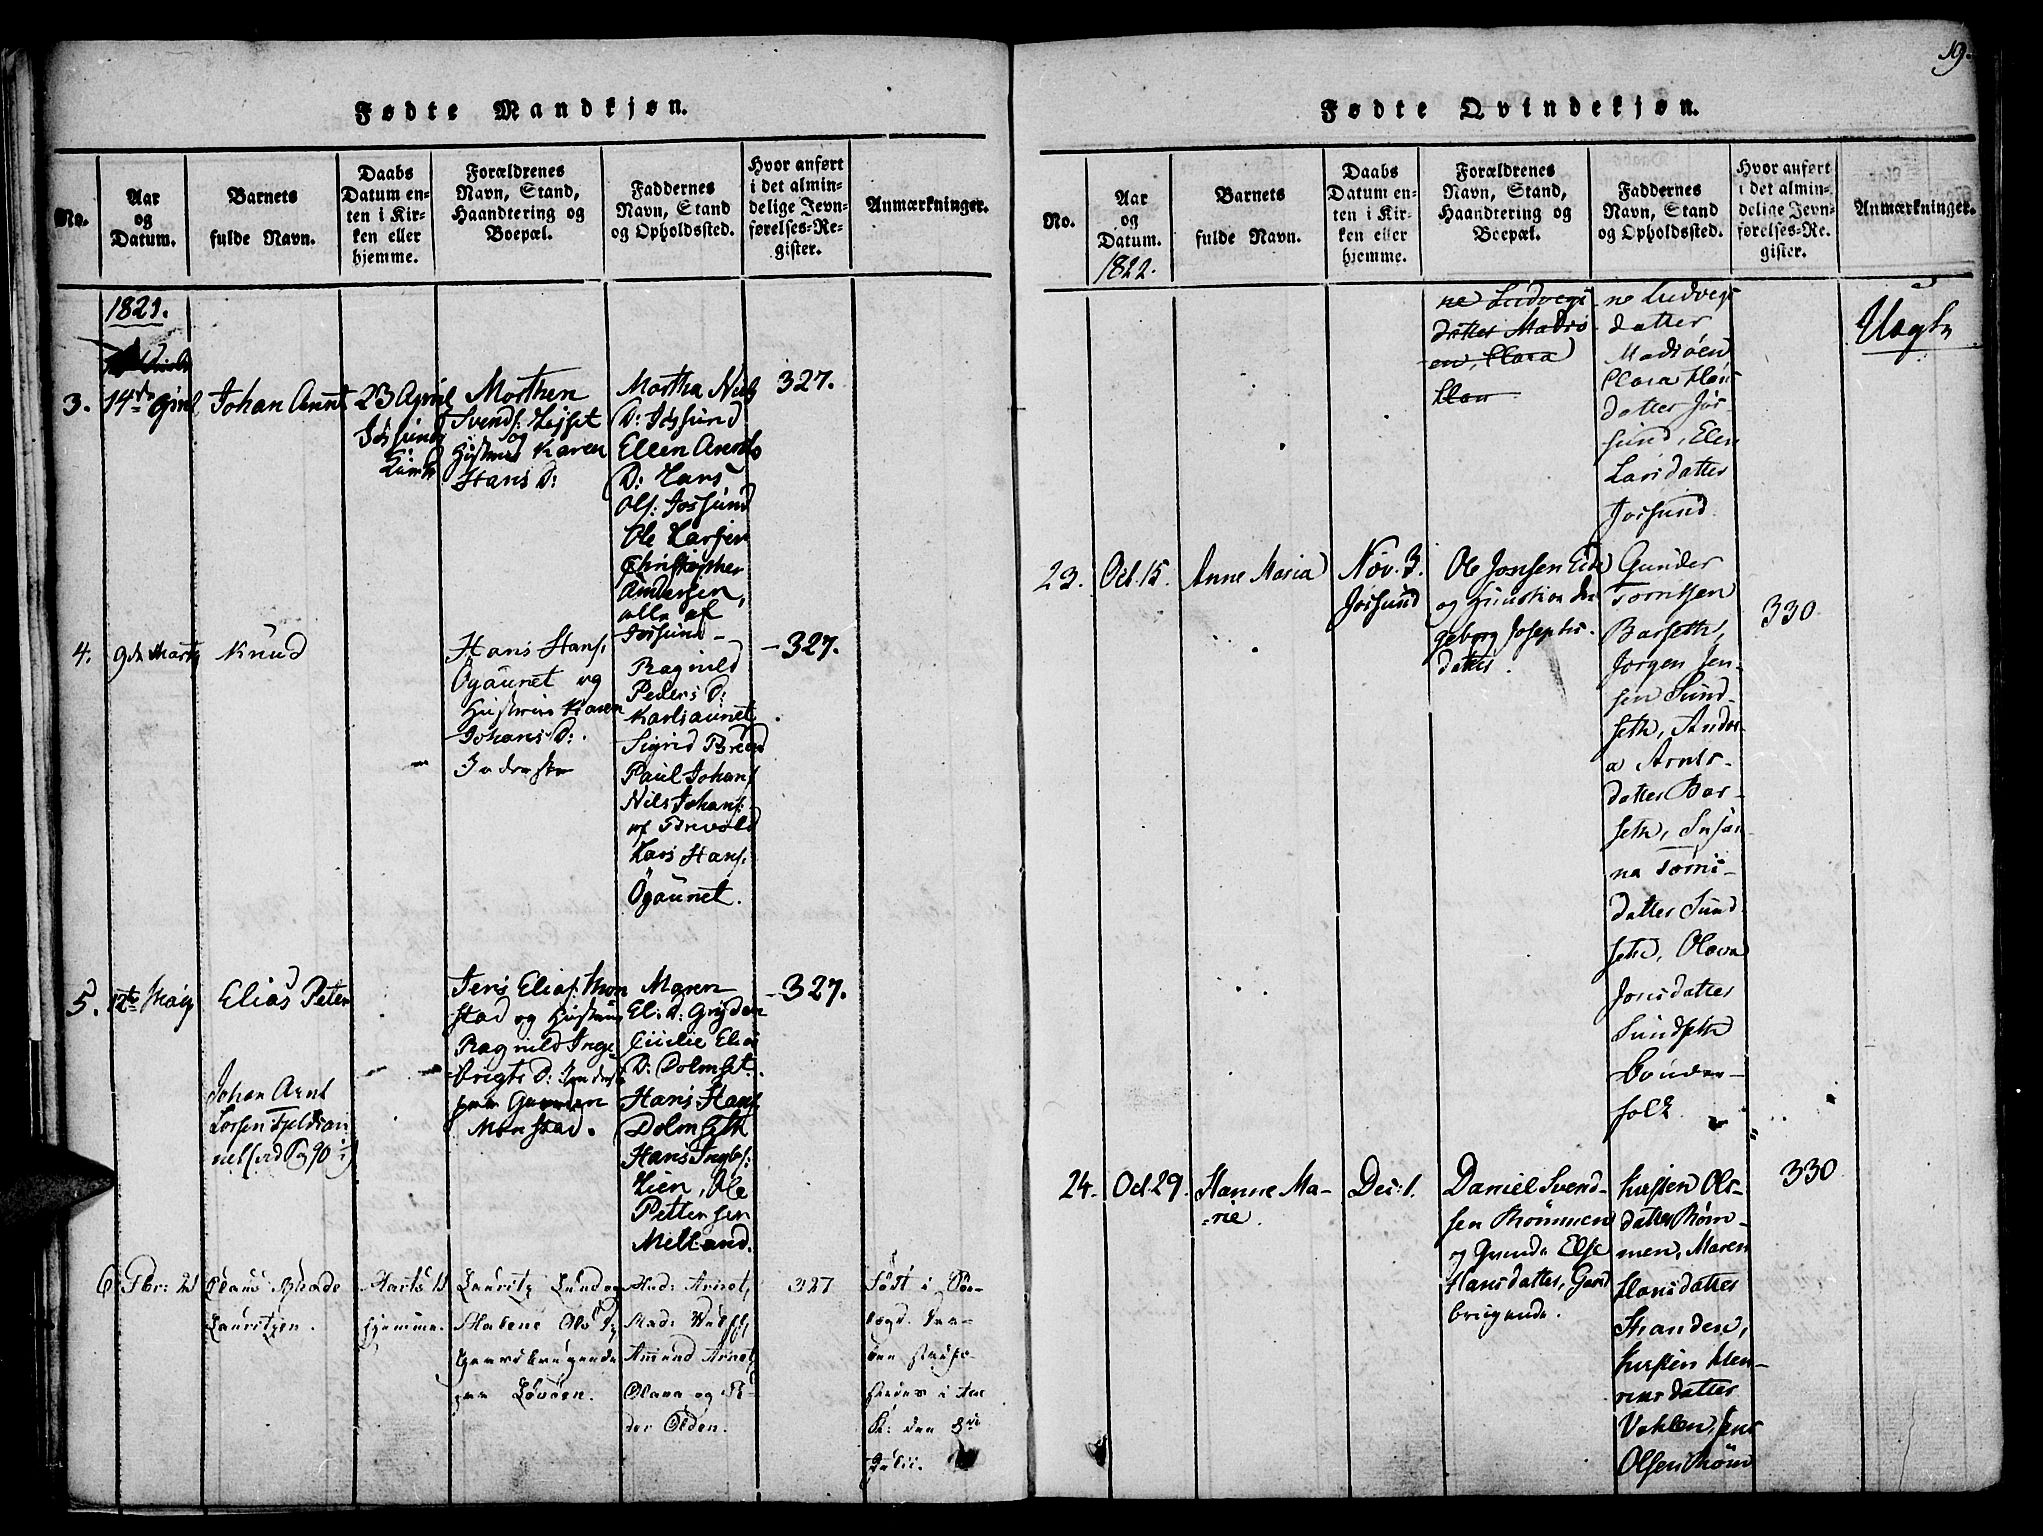 Fødte Mandkjøn.
No.
Aar
og
Datum.
Barnets
fulde Navn.
Daabs
Datum en-
ten i Kir-
ken eller
hjemme.
Forældrenes
Navn, Stand,
Haandtering og
Boepæl.
Faddernes
Navn, Stand
og Opholdssted.
Hvor anført
i det almin-
delige Jevn-
førelses-Re-
gister.
Anmærkninger.
1821.
3.
14de April
Johan Arnt
23 April
Jøssund
Kirke
Morthen
Svends: Lysset
og
Hustrue Karen
Hans D:
Martha Niels
D: Jøssund
Ellen Arents
D: Lars
Ols: Jossund
Ole Larsen
Christopher
Andersen,
alle af
Jossund
327.
4.
9de Marty
Knud
Hans Hans:
Ögaunet og
Hustrue Karen
Johans D:
Ragnild
Peders D:
Karlsaunet
Sigrid Brevold
Paul Johans:
Nils Johans:
af Brevold
Lars Hans:
Ögaunet.
327.
5.
12te May
Elias Peter
Johan Arnt
Jens Elias: Mon
stad og Hustrue
Ragnild Inge
brigts D:
paa
Monstad.
Maren
El: D: Gryden
Cicilie Elias
D: Dolmset.
Hans Hans:
Dolmseth
Hans Ingbs:
Lien, Ole
Pettersen
Melland.
327.
6
Fbr: 21
Claus
Lauritzen.
Marts 11
hjemme.
Lauritz Lund og
Malene Ols D:
Gaardbrugende
paa Lövöen.
Mad: Arnet,
Mad: Wulff,
Amund Arnet,
Olava og Pe-
der Olden.
327
Født i
den
den 8de
Julii.
19.
Fødte Qvindekjøn.
No.
Aar
og
Datum.
1822.
Barnets
fulde Navn.
Daabs
Datum en-
ten i Kir-
ken eller
hjemme.
Forældrenes
Navn, Stand,
Haandtering og
Boepæl.
Faddernes
Navn, Stand
og Opholdssted.
Hvor anført
i det almin-
delige Jevn-
førelses-Re-
gister.
Anmærkninger.
ne Ludvigs
datter Madsö
en, Clara
Clau
ne Ludvigs
datter
Madsöen
Clara Hans
datter Jös-
sund, Elen
Larsdatter
Jossund.
23.
Oct. 15.
Anne Maria
Nov. 3.
Jossund
Ole Jonsen Eide
og Hustrue In
geborg Josephs-
datter.
Gunder
Tomesen
Barseth,
Jörgen Jen-
sen Sund-
seth, Andre-
a Arnts-
datter Bar-
seth, Susan-
na Tomes-
datter Sund
seth, Olava
Jonsdatter
Sundseth
Bönder-
folk.
330
24.
Oct. 29.
Hanne Ma-
rie.
Dec: 1.
Daniel Svend-
sen Römmen
og Qvinde Else
Hansdatter, Gaard
brugende.
Kirsten Ols-
datter Röm-
men, Maren
Hansdatter
Stranden,
Kirsten Hen-
riksdatter
Vahlen, Jens
Olsen Röm
330